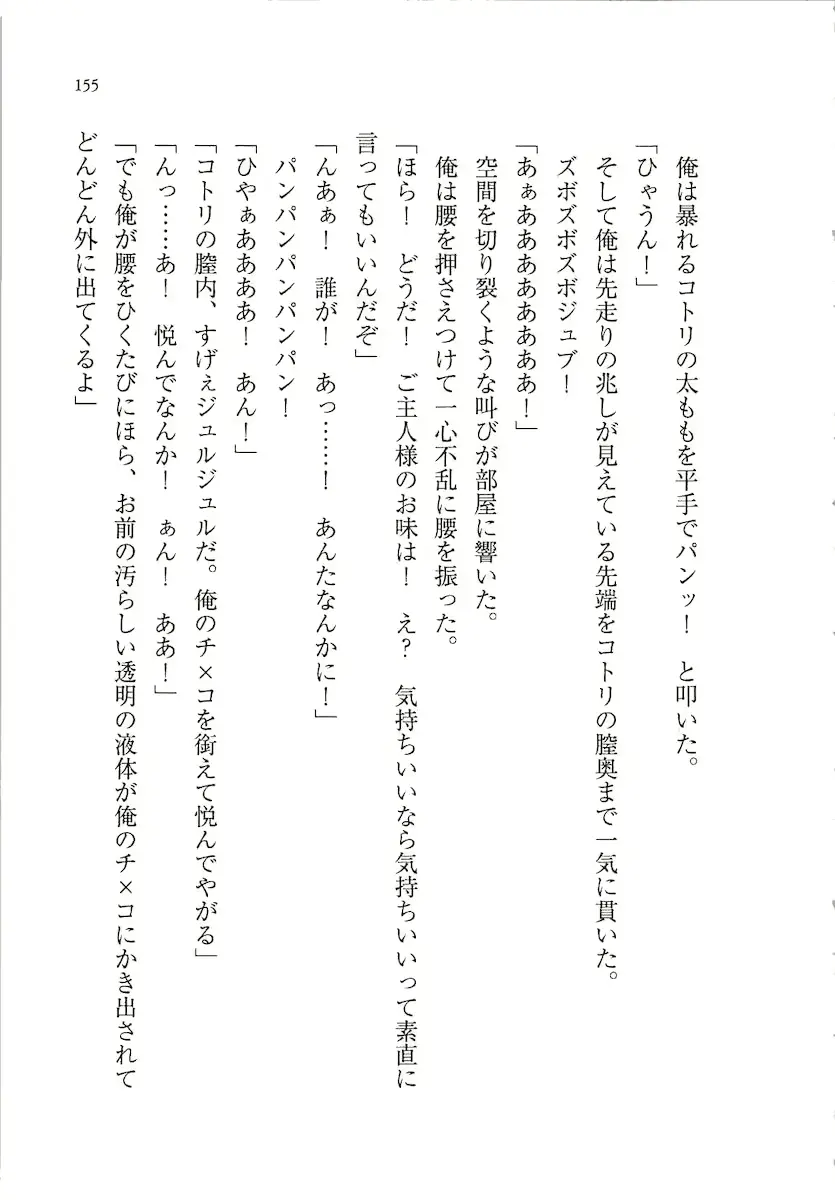 155
俺は暴れるコトリの太ももを平手でパンッ！　と叩いた。
「ひゃうん！」
そして俺は先走りの兆しが見えている先端をコトリの膣奥まで一気に貫いた。
ズボズボズボジュブ！
「あぁあああああああ！」
空間を切り裂くような叫びが部屋に響いた。
俺は腰を押さえつけて一心不乱に腰を振った。
「ほら！　どうだ！　ご主人様のお味は！　え？　気持ちいいなら気持ちいいって素直に
言ってもいいんだぞ」
「んあぁ！　誰が！　あっ……！　あんたなんかに！」
パンパンパンパンパン！
「ひやぁああああ！　あん！」
「コトリの膣内、すげぇジュルジュルだ。俺のチ×コを銜えて悦んでやがる」
「んっ……あ！　悦んでなんか！　ぁん！　ああ！」
「でも俺が腰をひくたびにほら、お前の汚らしい透明の液体が俺のチ×コにかき出されて
どんどん外に出てくるよ」